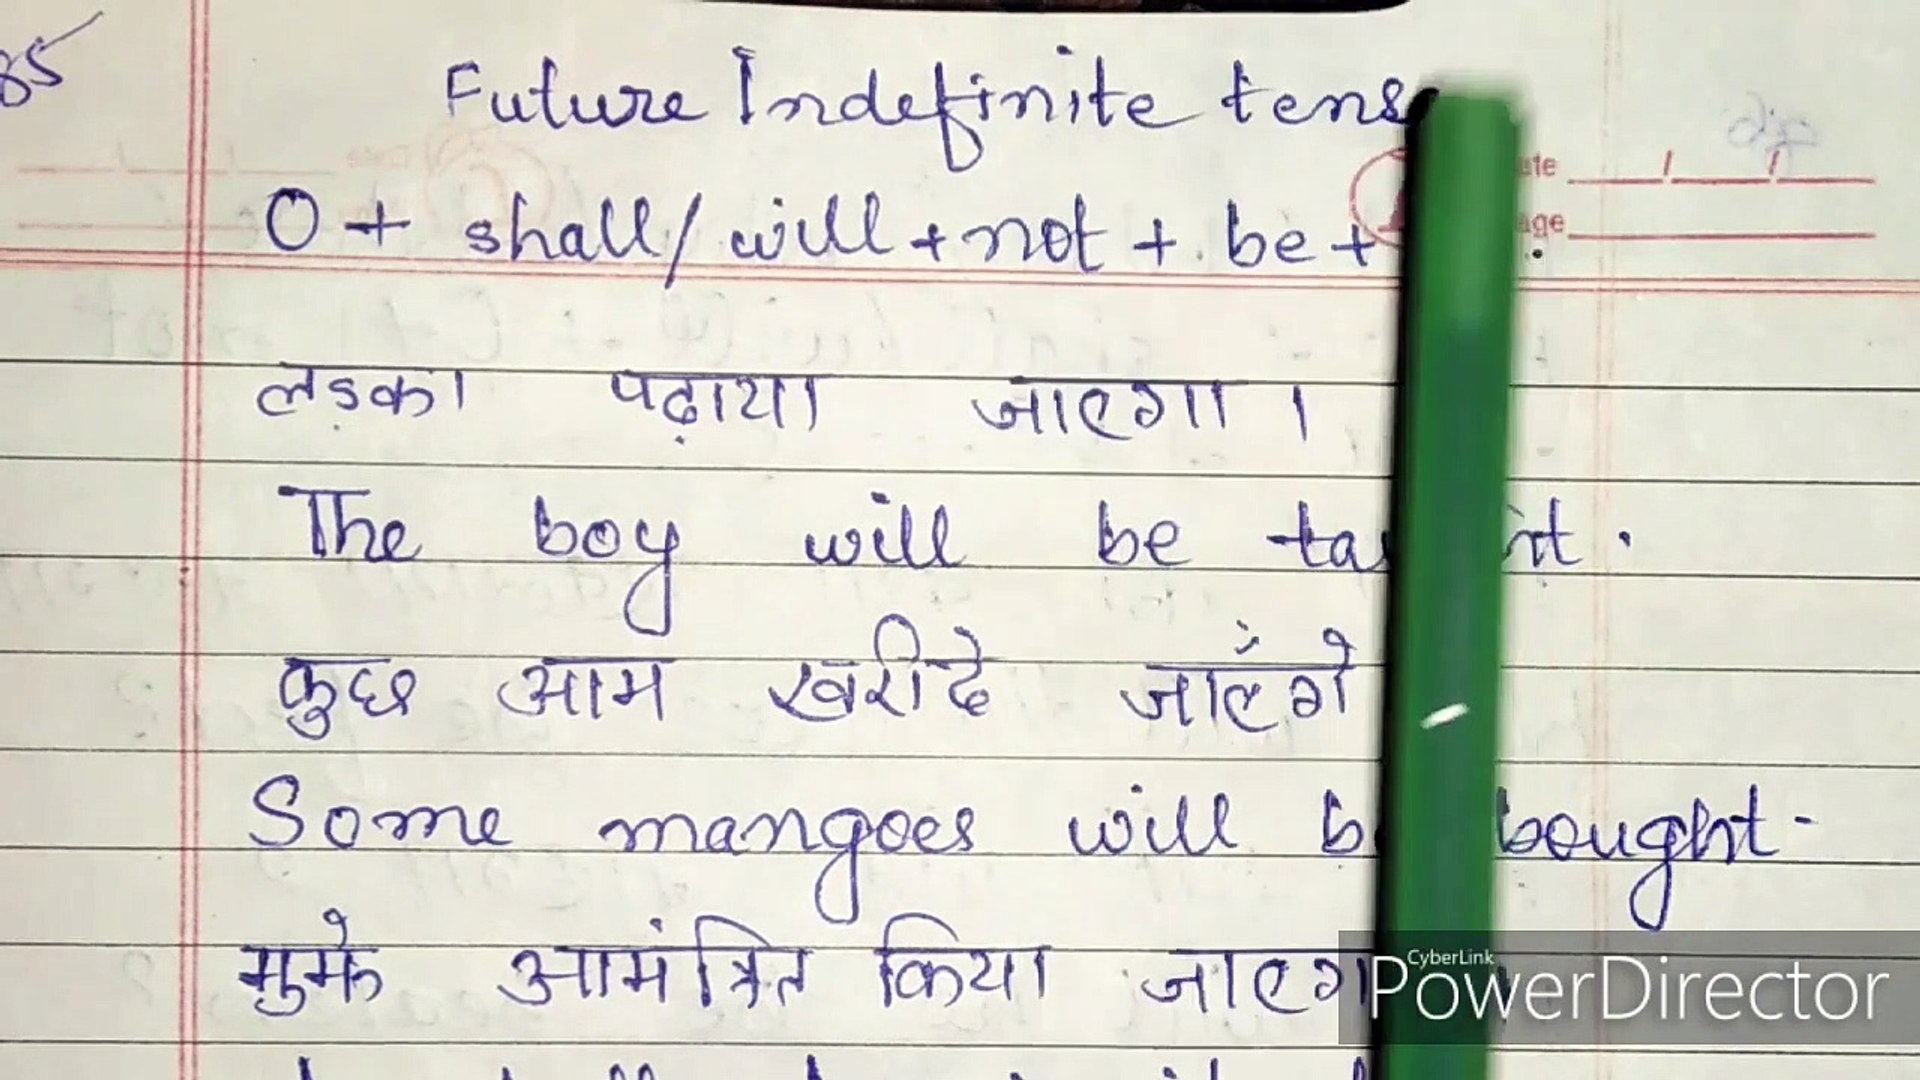 85
Future Indefinite tens
O + shall/will + not + be +
लड़का पढ़ाया जाएगा ।
The boy will be
कुछ आम खरीदे जाएंगे
Some mangoes will bought.
मुझे आमंत्रित किया
CyberLink
PowerDirector